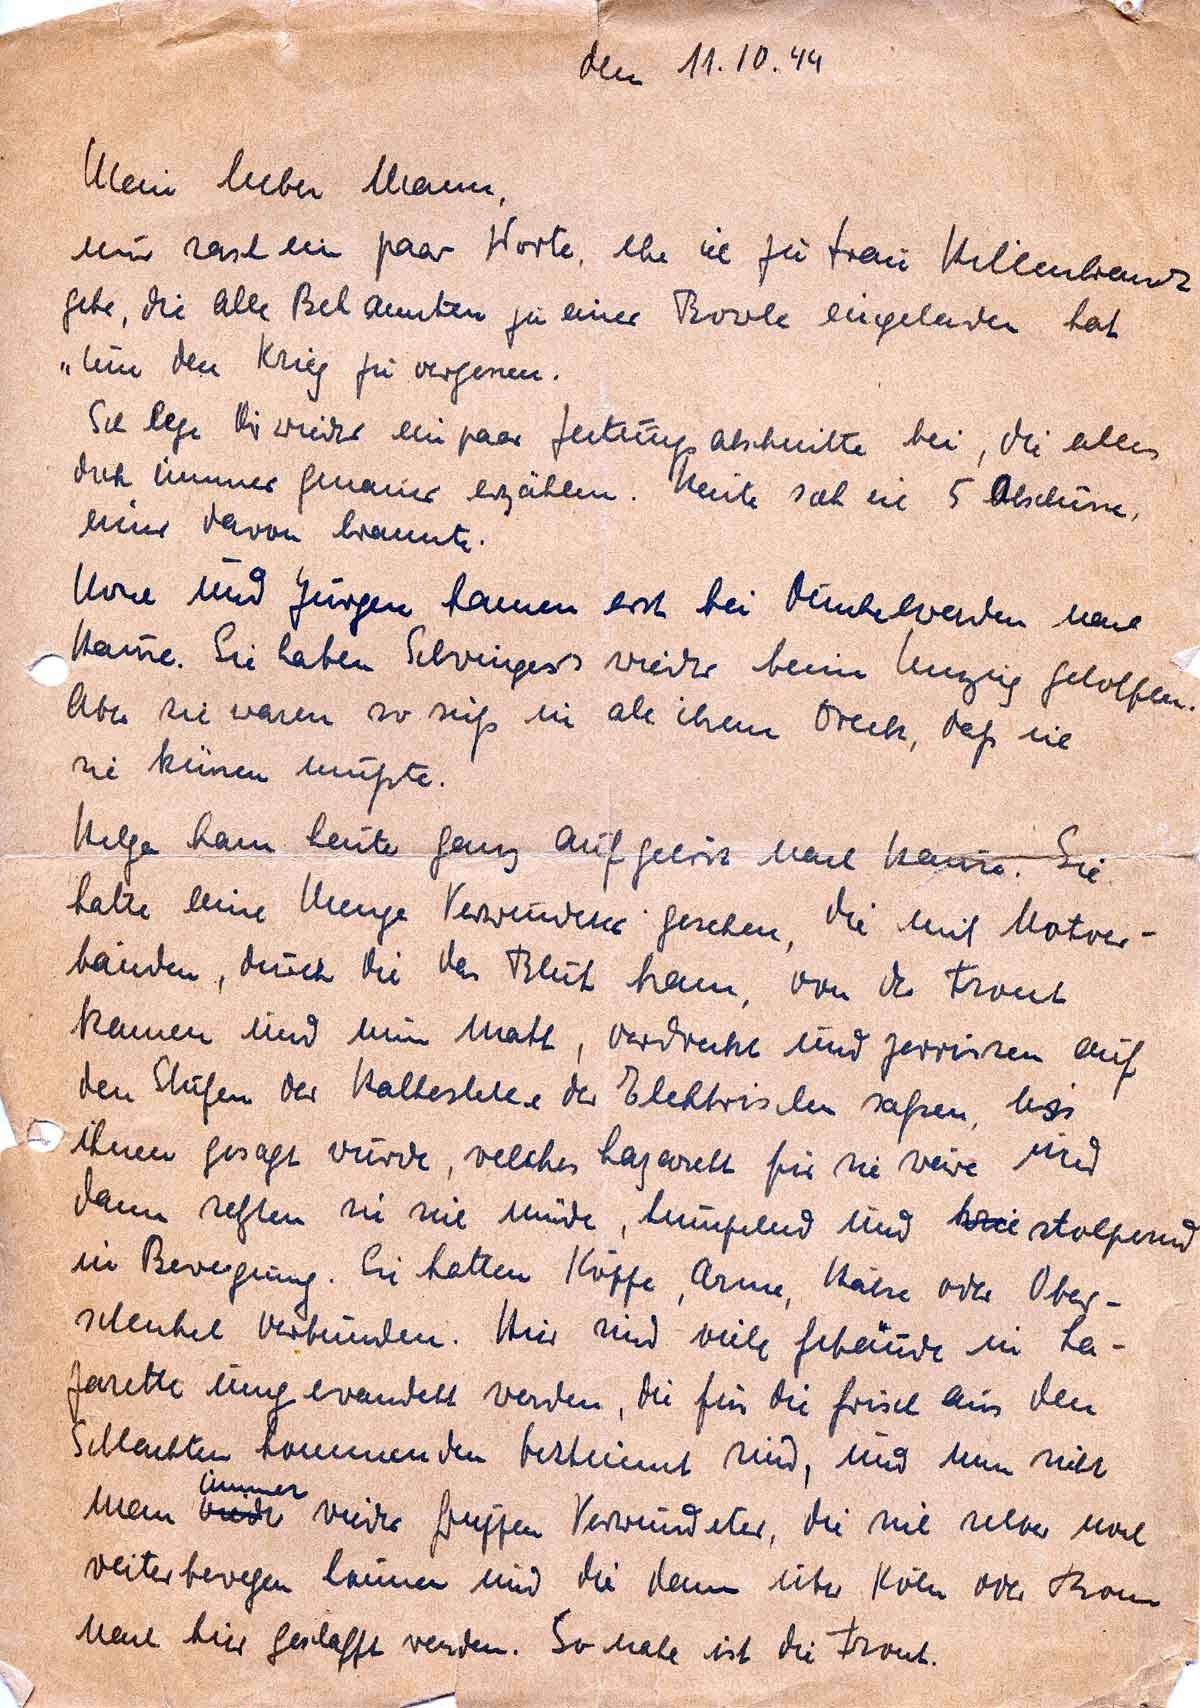 den 11.10.44
Mein lieber Mann,
nur rasch ein paar Worte, ehe ich zu Frau Hillenbrand
gehe, die alle Bekannten zu einer Bowle eingeladen hat
„um den Krieg zu vergessen.
Ich lege Dir wieder ein paar Zeitungsabschnitte bei, die alles
doch immer genauer erzählen. Heute sah ich 5 Abschüsse,
einer davon brannte.
Horst und Jürgen kamen erst bei Dunkelwerden nach
Hause. Sie haben wieder beim Umzug geholfen.
Aber sie waren so süß in all ihrem Dreck, daß ich
sie küssen mußte.
Helga kam heute ganz aufgelöst nach Hause. Sie
hatte eine Menge Verwundeter gesehen, die mit Notver-
bänden, durch die das Blut kam, von der Front
kamen und nun matt, verdreckt und zerrissen auf
den Stufen der Haltestelle der Elektrischen saßen, bis
ihnen gesagt wurde, welches Lazarett für sie wäre und
dann setzten sie sich müde, humpelnd und stolpernd
in Bewegung. Sie hatten Köpfe, Arme, Hälse oder Ober-
schenkel verbunden. Hier sind viele Gebäude in La-
zarette umgewandelt worden, die für die frisch aus den
Schlachten kommenden bestimmt sind, und nun sieht
man immer wieder Gruppen Verwundeter, die sich selber noch
weiterbewegen können und die dann über Köln oder Bonn
nach hier geschafft werden. So nahe ist die Front.